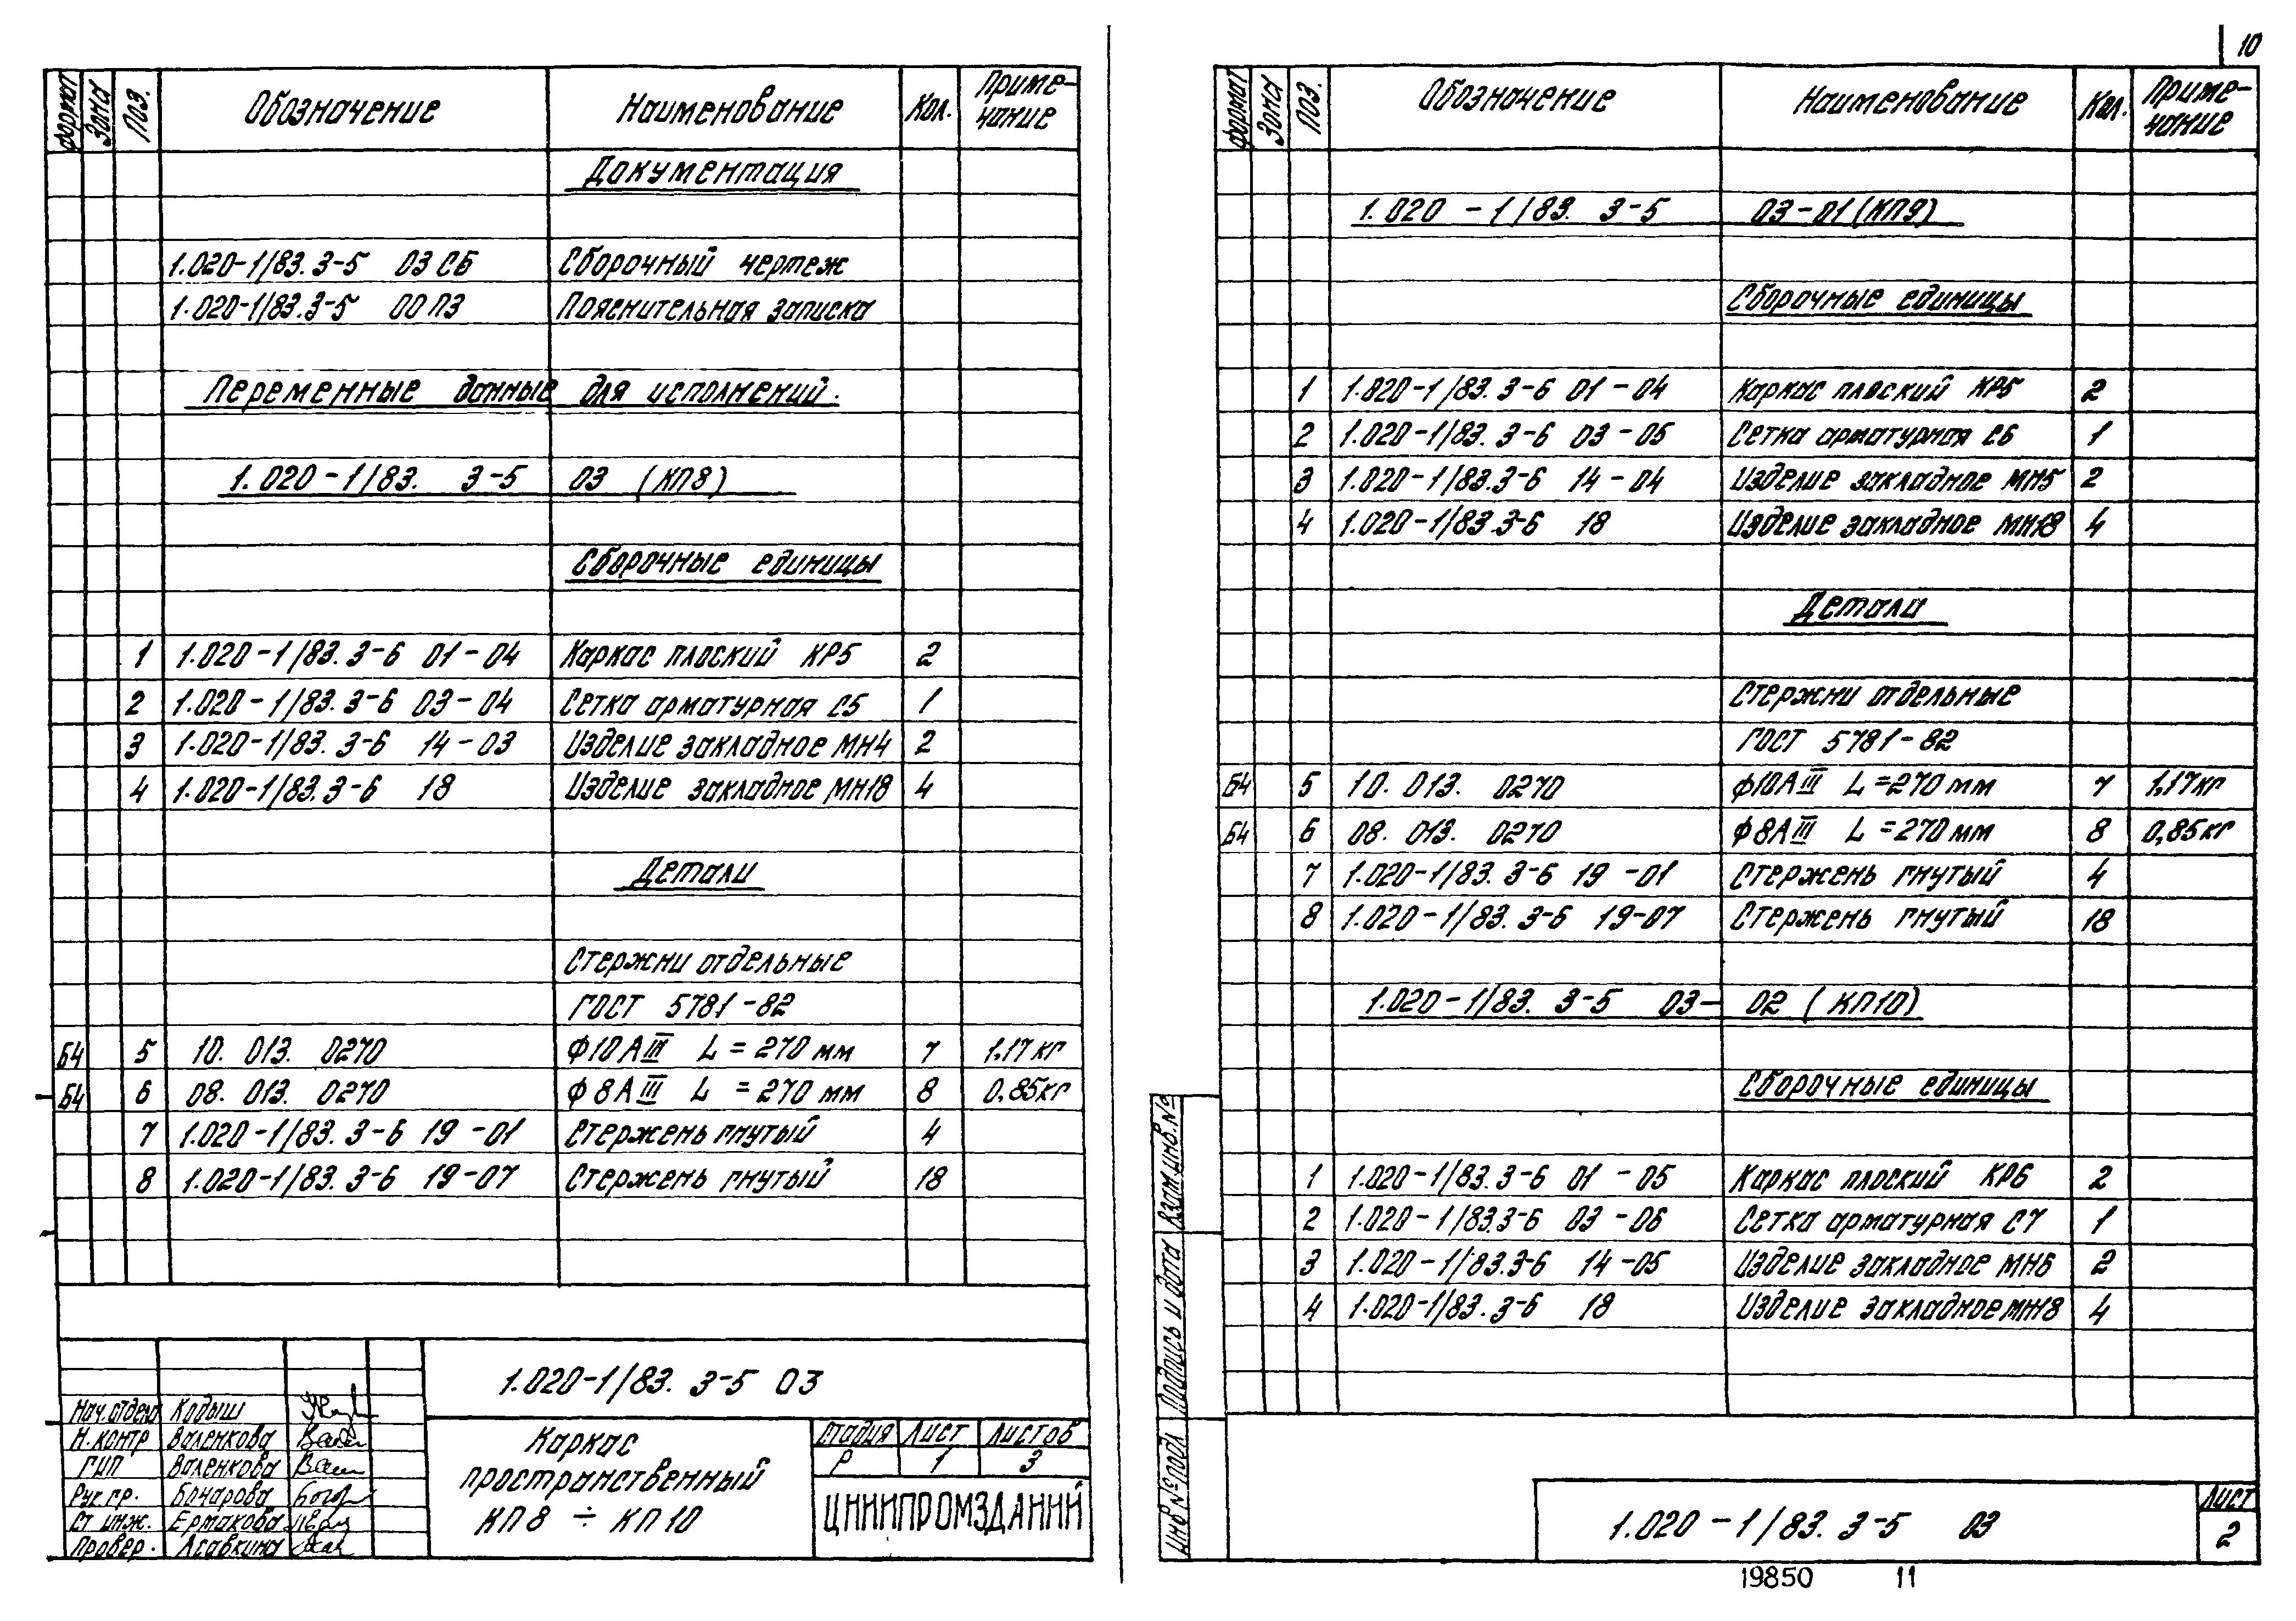 10
Формат Зона Поз. Обозначение Наименование Кол. Приме-
чание
Документация
1.020-1/83. 3-5 03 СБ Сборочный чертеж
1.020-1/83. 3-5 00 ПЗ Пояснительная записка
Переменные данные для исполнений.
1.020-1/83. 3-5 03 (КП8)
Сборочные единицы
1 1.020-1/83. 3-6 01-04 Каркас плоский КР5 2
2 1.020-1/83. 3-6 03-04 Сетка арматурная С5 1
3 1.020-1/83. 3-6 14-03 Изделие закладное МН4 2
4 1.020-1/83. 3-6 18 Изделие закладное МН18 4
Детали
Стержни отдельные
ГОСТ 5781-82
Б4 5 10. 013. 0270 Ф10АIII L=270 мм 7 1,17 кг
Б4 6 08. 013. 0270 Ф8АIII L=270 мм 8 0,85 кг
7 1.020-1/83. 3-6 19-01 Стержень гнутый 4
8 1.020-1/83. 3-6 19-07 Стержень гнутый 18
1.020-1/83. 3-5 03
Нач. отдела Кодыш
Н. контрВаленкова
ГИП Валенкова
Рук. гр. Бочарова
Ст. инж. Ермакова
Провер. Асавкина
Каркас
пространственный
КП8 ÷ КП10
Стадия Лист Листов
Р 1 3
ЦНИИПРОМЗДАНИЙ
Формат Зона Поз. Обозначение Наименование Кол. Приме-
чание
1.020-1/83. 3-5 03-01 (КП9)
Сборочные единицы
1 1.020-1/83. 3-6 01-04 Каркас плоский КР5 2
2 1.020-1/83. 3-6 03-05 Сетка арматурная С6 1
3 1.020-1/83. 3-6 14-04 Изделие закладное МН5 2
4 1.020-1/83. 3-6 18 Изделие закладное МН18 4
Детали
Стержни отдельные
ГОСТ 5781-82
Б4 5 10. 013. 0270 Ф10АIII L=270 мм 7 1,17 кг
Б4 6 08. 013. 0270 Ф8АIII L=270 мм 8 0,85 кг
7 1.020-1/83. 3-6 19-01 Стержень гнутый 4
8 1.020-1/83. 3-6 19-07 Стержень гнутый 18
1.020-1/83. 3-5 03-02 (КП10)
Сборочные единицы
1 1.020-1/83. 3-6 01-05 Каркас плоский КР6 2
2 1.020-1/83. 3-6 03-06 Сетка арматурная С7 1
3 1.020-1/83. 3-6 14-05 Изделие закладное МН6 2
4 1.020-1/83. 3-6 18 Изделие закладное МН18 4
Взам. инв. №
Подпись и дата
Инв № подл
1.020-1/83. 3-5 03
Лист
2
19850 11